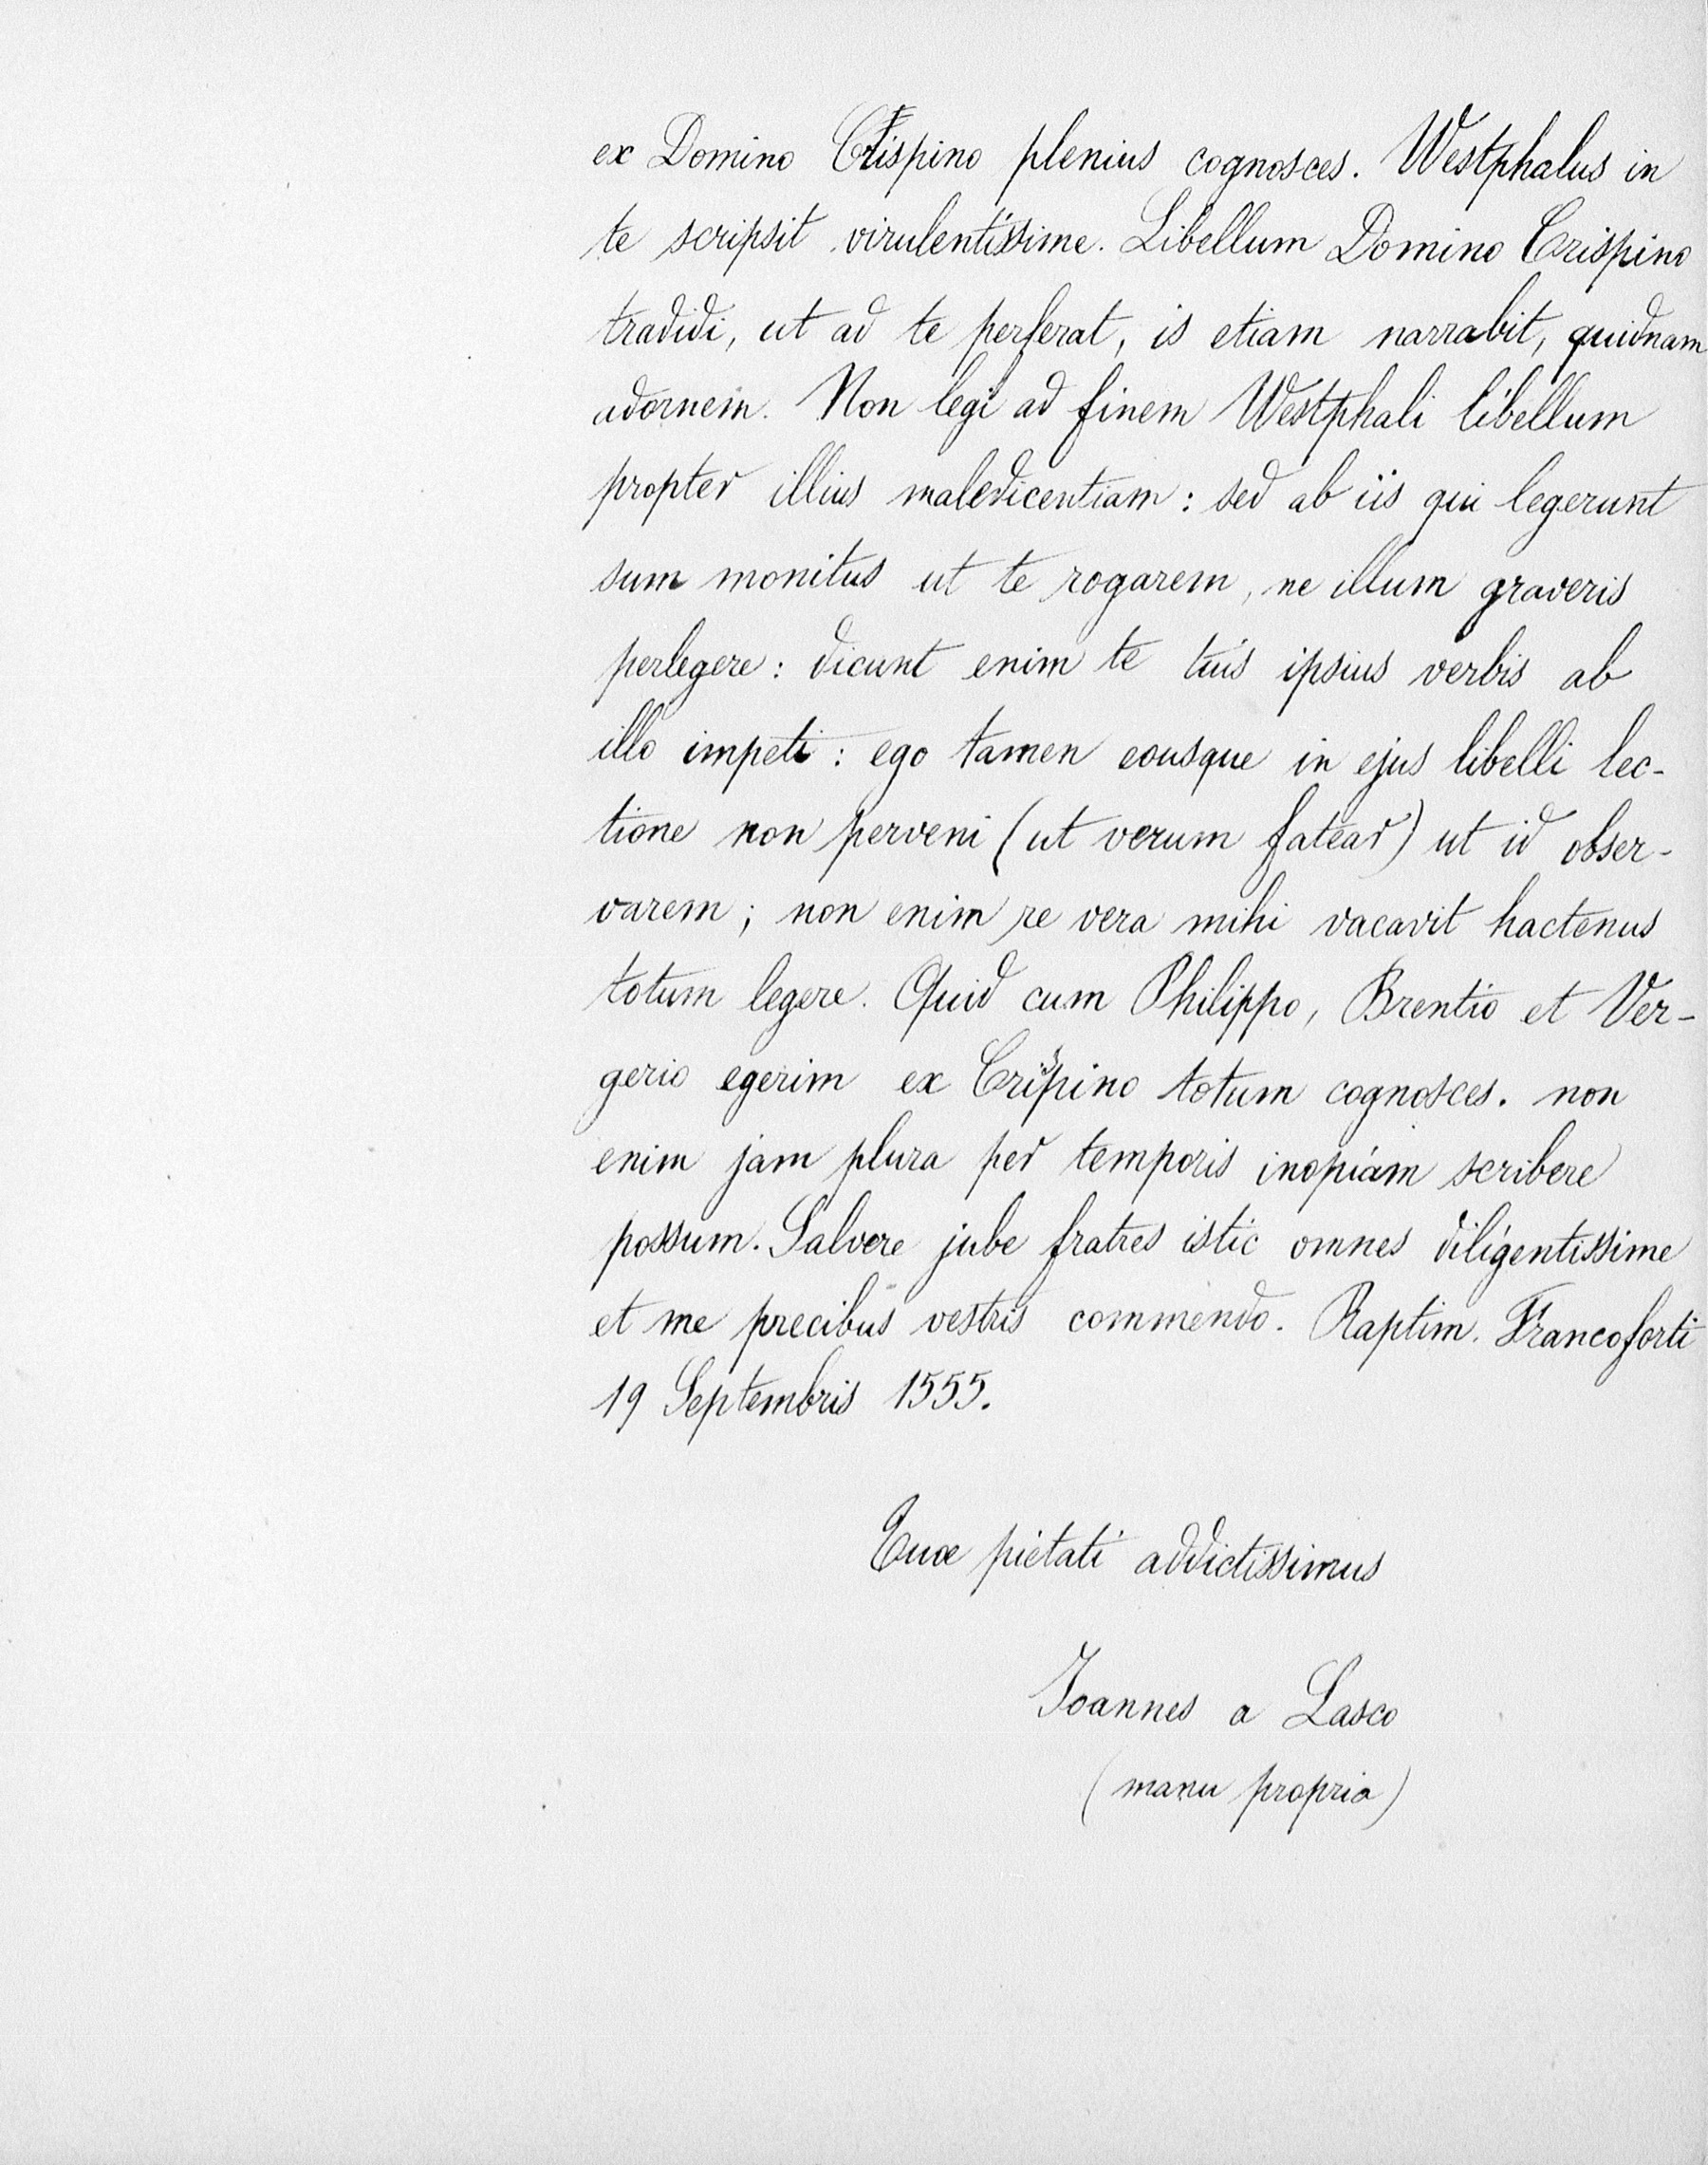 ex Domino Crispino plenius cognosces. Westphalus in
te scripsit virulentissime. Libellum Domino Crispino
tradidi, ut ad te perferat, is etiam narrabit, quidnam
adornem. Non legi ad finem Westphali libellum
propter illius maledicentiam : sed ab iis qui legerunt
sum monitus ut te rogarem, ne illum graveris
perlegere : dicunt enim te tuis ipsius verbis ab
illo impeti : ego tamen eousque in ejus libelli lec-
tione non perveni (ut verum fatear) ut id obser-
varem ; non enim re vera mihi vacavit hactenus
totum legere. Quid cum Philippo, Brentio et Ver-
gerio egerim ex Crispino totum cognosces. non
enim jam plura per temporis inopiam scribere
possum. Salvere jube fratres istic omnes diligentissime
et me precibus vestris commendo. Raptim. Francoforti
19 Septembris 1555.
Tuæ pietati addictissimus
Joannes a Lasco
(manu propria)